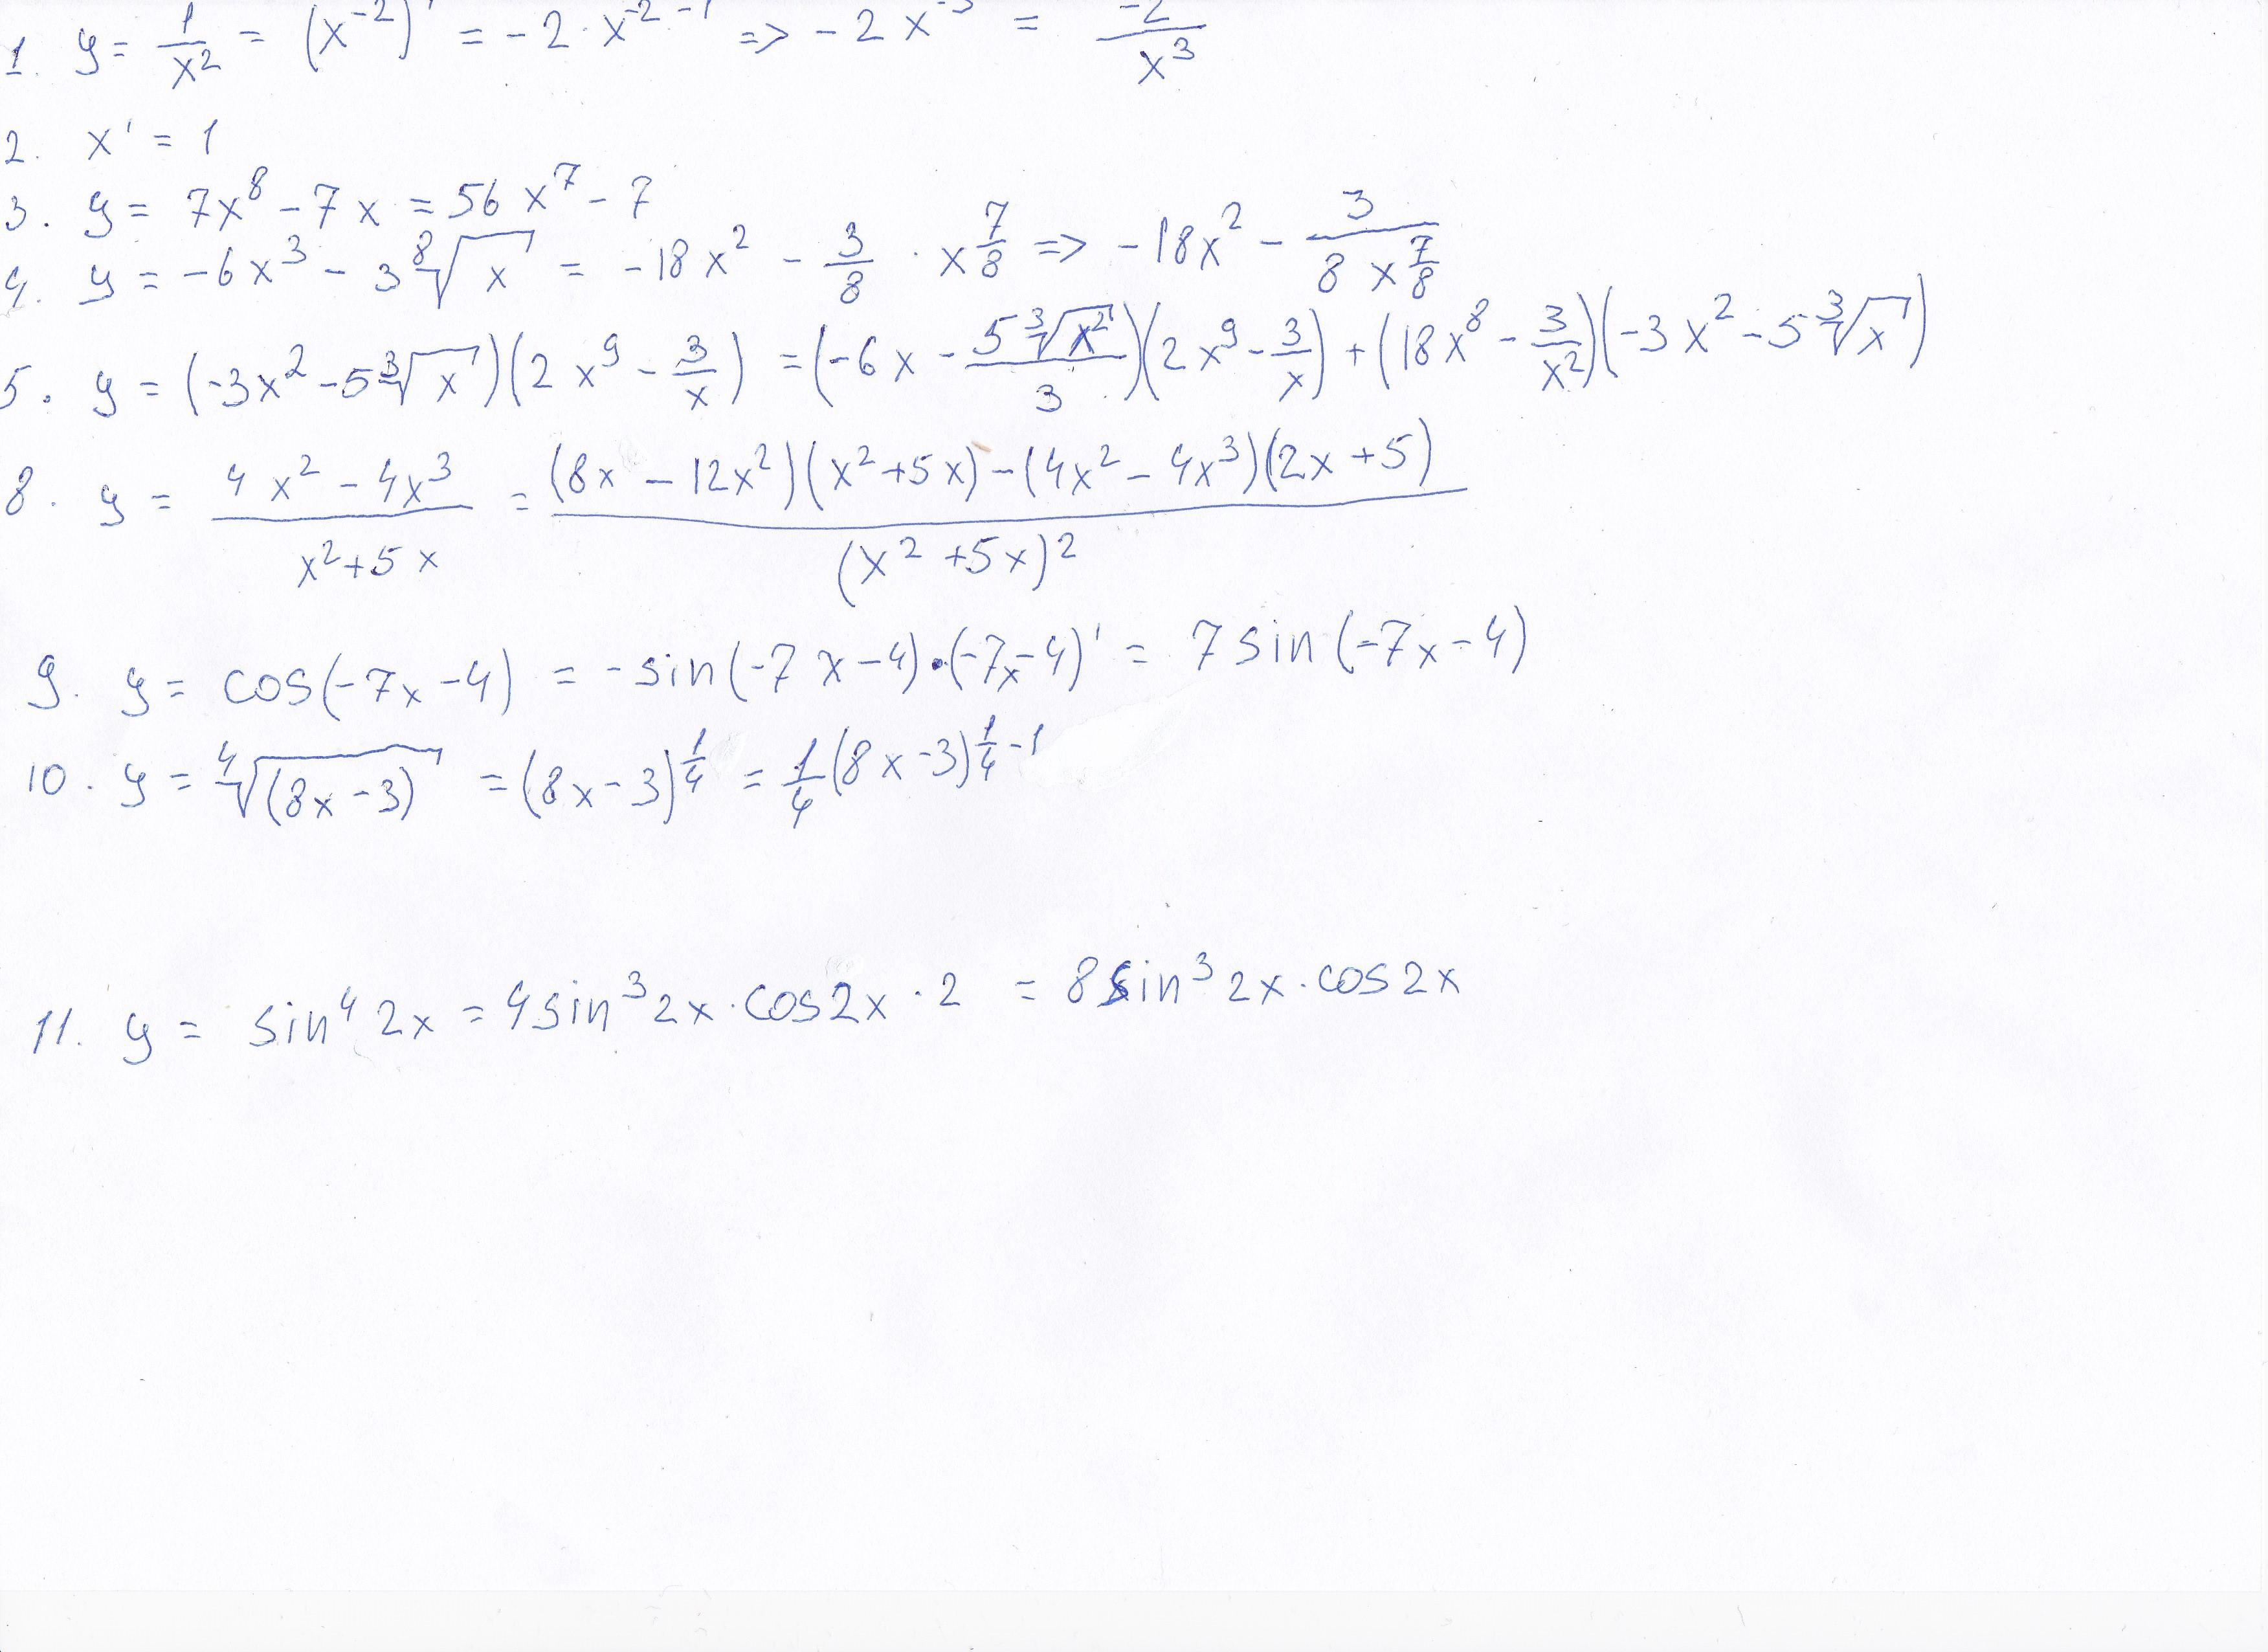 1. y = 1/x² = (x⁻²)' = -2 · x⁻²⁻¹ => -2x⁻³ = -2/x³
2. x' = 1
3. y = 7x⁸ - 7x = 56x⁷ - 7
4. y = -6x³ - 3⁸√x = -18x² - 3/8 · x^(7/8) => -18x² - 3/(8x^(7/8))
5. y = (-3x² - 5³√x)(2x⁹ - 3/x) = (-6x - 5³√x²/3)(2x⁹ - 3/x) + (18x⁸ - 3/x²)(-3x² - 5³√x)
8. y = (4x² - 4x³)/(x² + 5x) = ((8x - 12x²)(x² + 5x) - (4x² - 4x³)(2x + 5))/(x² + 5x)²
9. y = cos(-7x - 4) = -sin(-7x - 4)·(-7x - 4)' = 7sin(-7x - 4)
10. y = ⁴√(8x - 3) = (8x - 3)^(1/4) = 1/4(8x - 3)^(1/4 - 1)
11. y = sin⁴2x = 4sin³2x · cos2x · 2 = 8sin³2x · cos2x